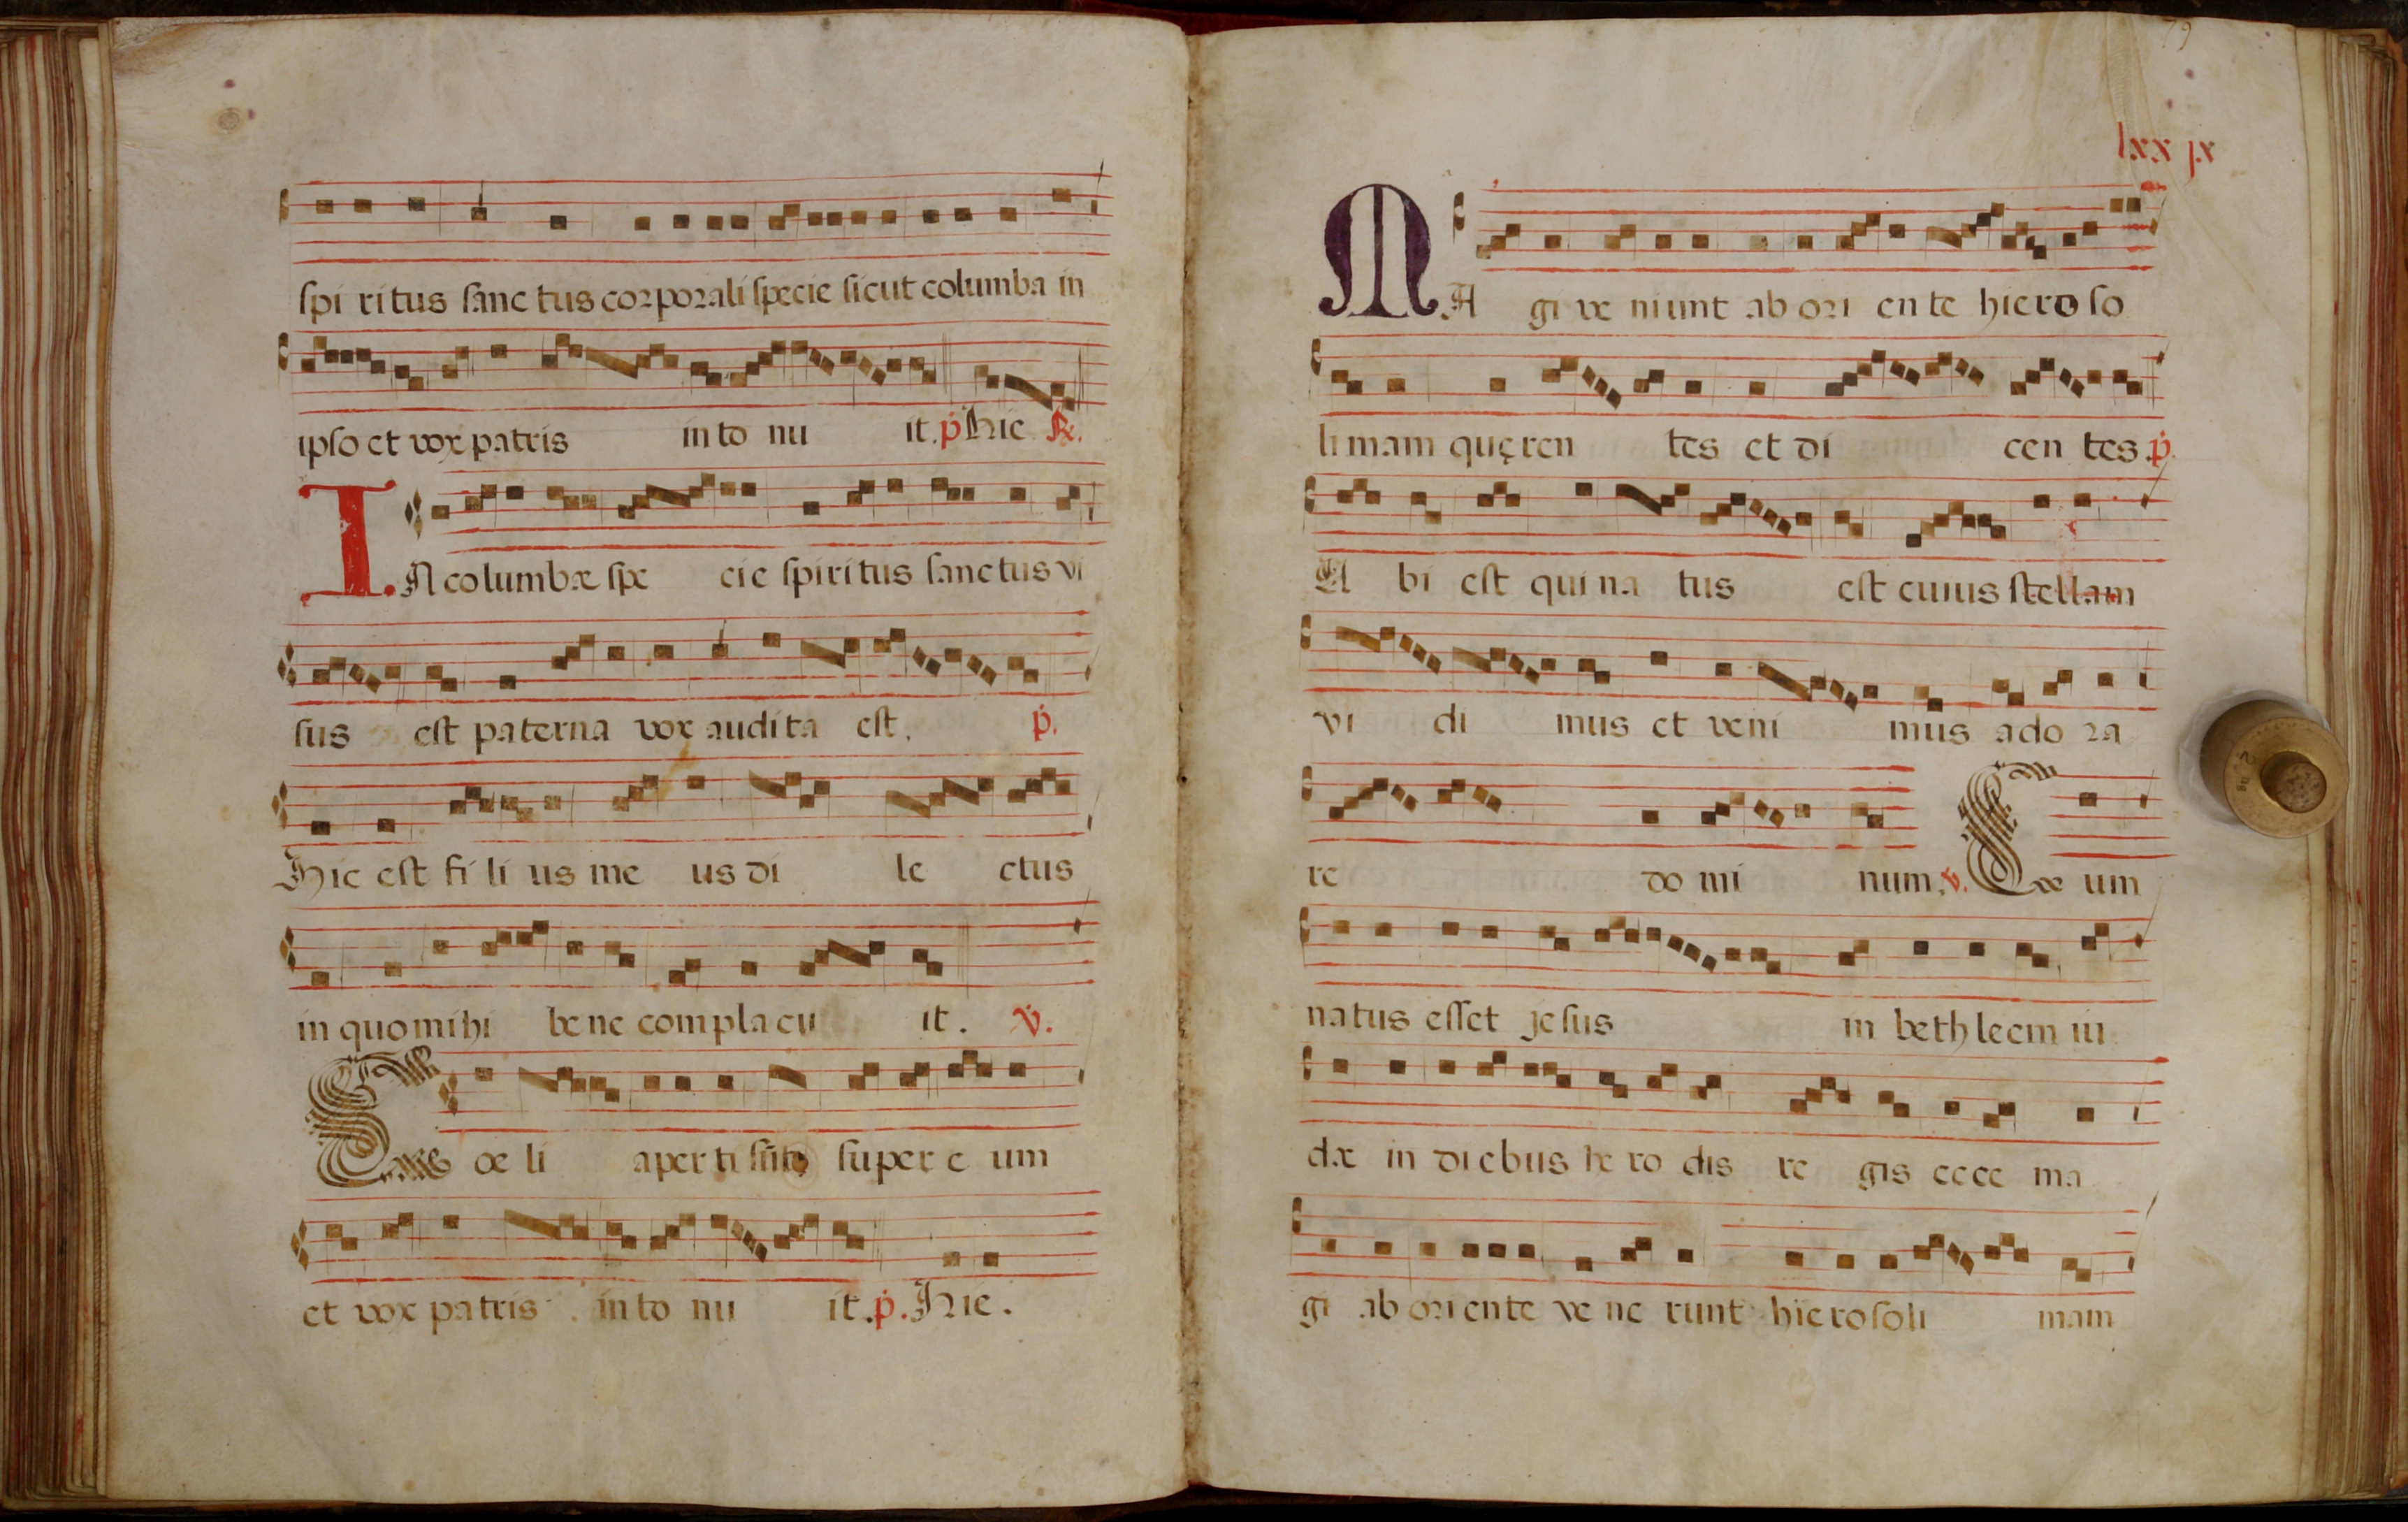 spi ritus sanc tus corporali specie sicut columba in
ipso et vox patris in to nu it. ṗ Hic ℟.
IN columbæ spe cie spiritus sanctus vi
sus est paterna vox audita est. ṗ.
Hic est fi li us me us di le ctus
in quo mihi bene complacu it. ℣.
C œ li aperti sūt super e um
et vox patris in to nu it. ṗ. Hic.
79
lxx ix
MA gi ve niunt ab ori en te hieroso
li mam quęren tes et di cen tes. ṗ.
U bi est qui na tus est cuius stellam
vi di mus et veni mus ado ra
re do mi num. ℣. C um
natus esset jesus in bethleem iu
dæ in diebus he ro dis re gis ecce ma
gi ab oriente ve ne runt hierosoli mam